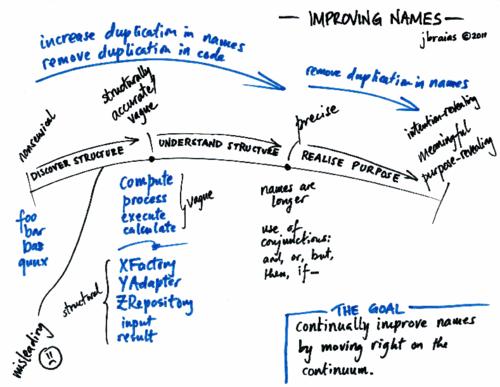 — IMPROVING NAMES —
jbrains ©2011
increase duplication in names
remove duplication in code
remove duplication in names
nonsensical
structurally
accurate/
vague
precise
intention-revealing
meaningful
purpose-revealing
DISCOVER STRUCTURE
UNDERSTAND STRUCTURE
REALISE PURPOSE
foo
bar
baz
quux
misleading
compute
process
execute
calculate
vague
structural
XFactory
YAdapter
ZRepository
input
result
names are
longer
use of
conjunctions:
and, or, but,
then, if—
THE GOAL
continually improve names
by moving right on the
continuum.